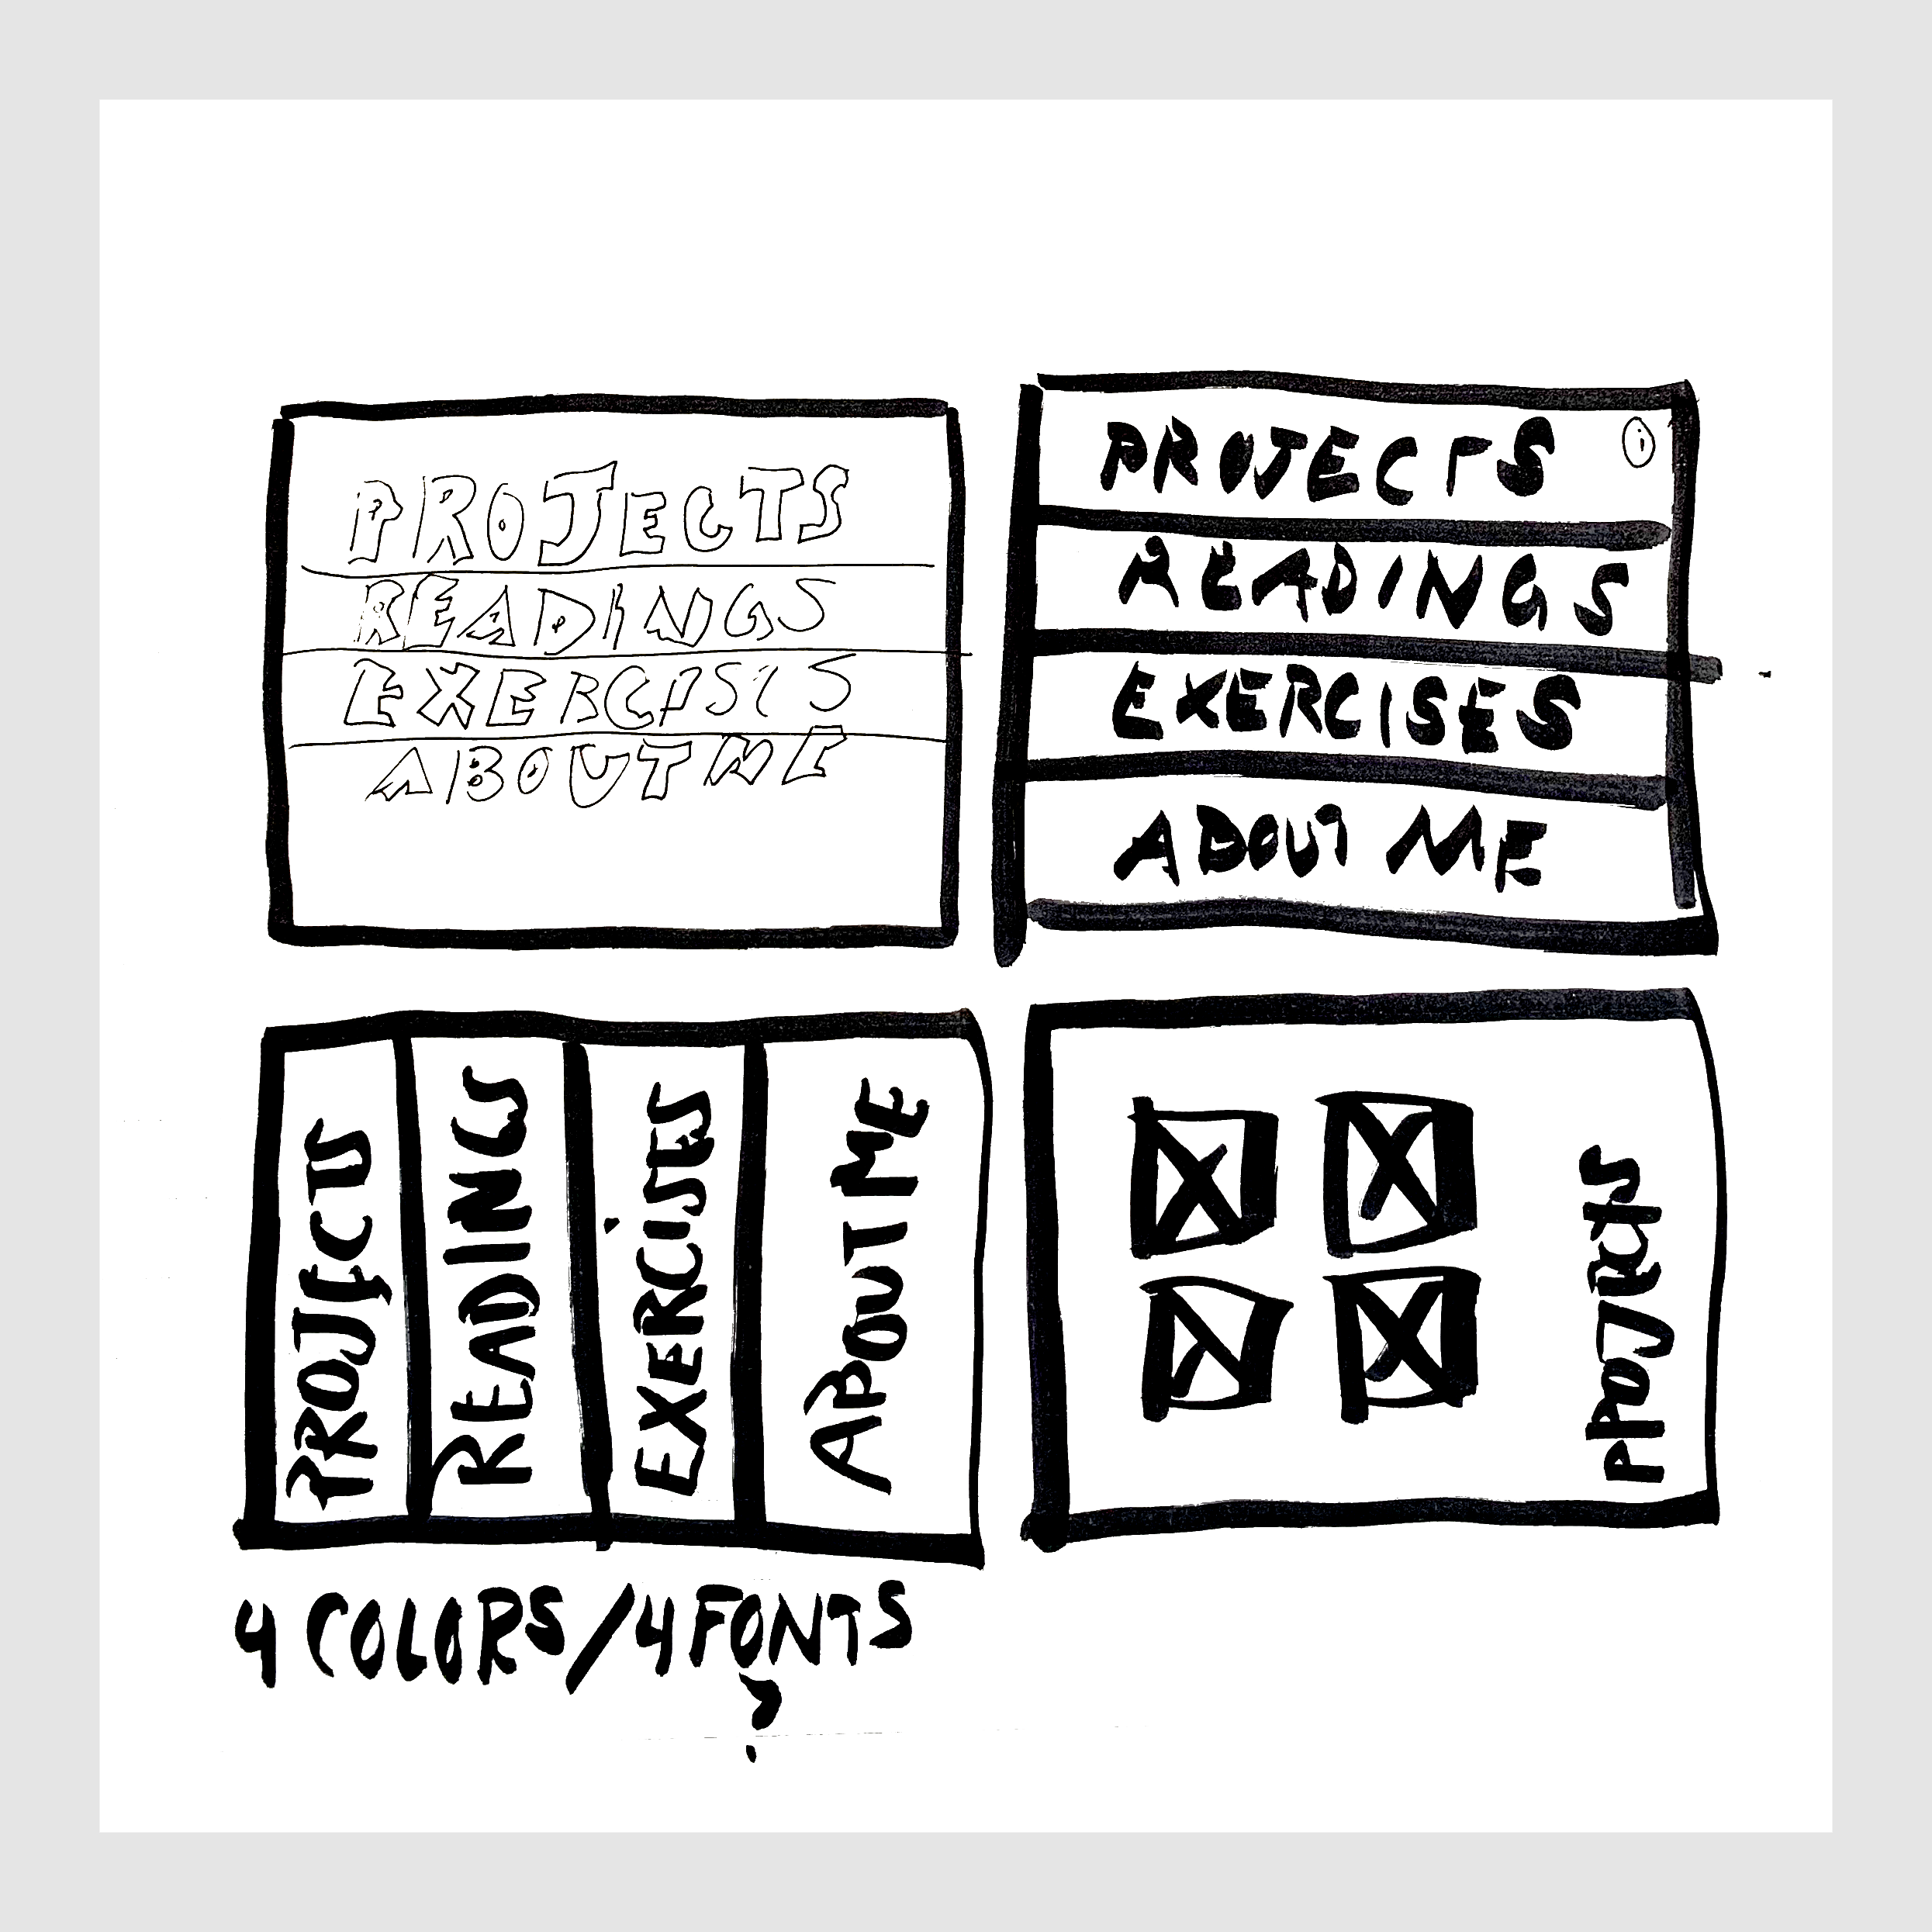 PROJECTS
READINGS
EXERCISES
ABOUT ME
PROJECTS i
READINGS
EXERCISES
ABOUT ME
PROJECTS
READINGS
EXERCISES
ABOUT ME
PROJECTS
4 COLORS/4 FONTS
?